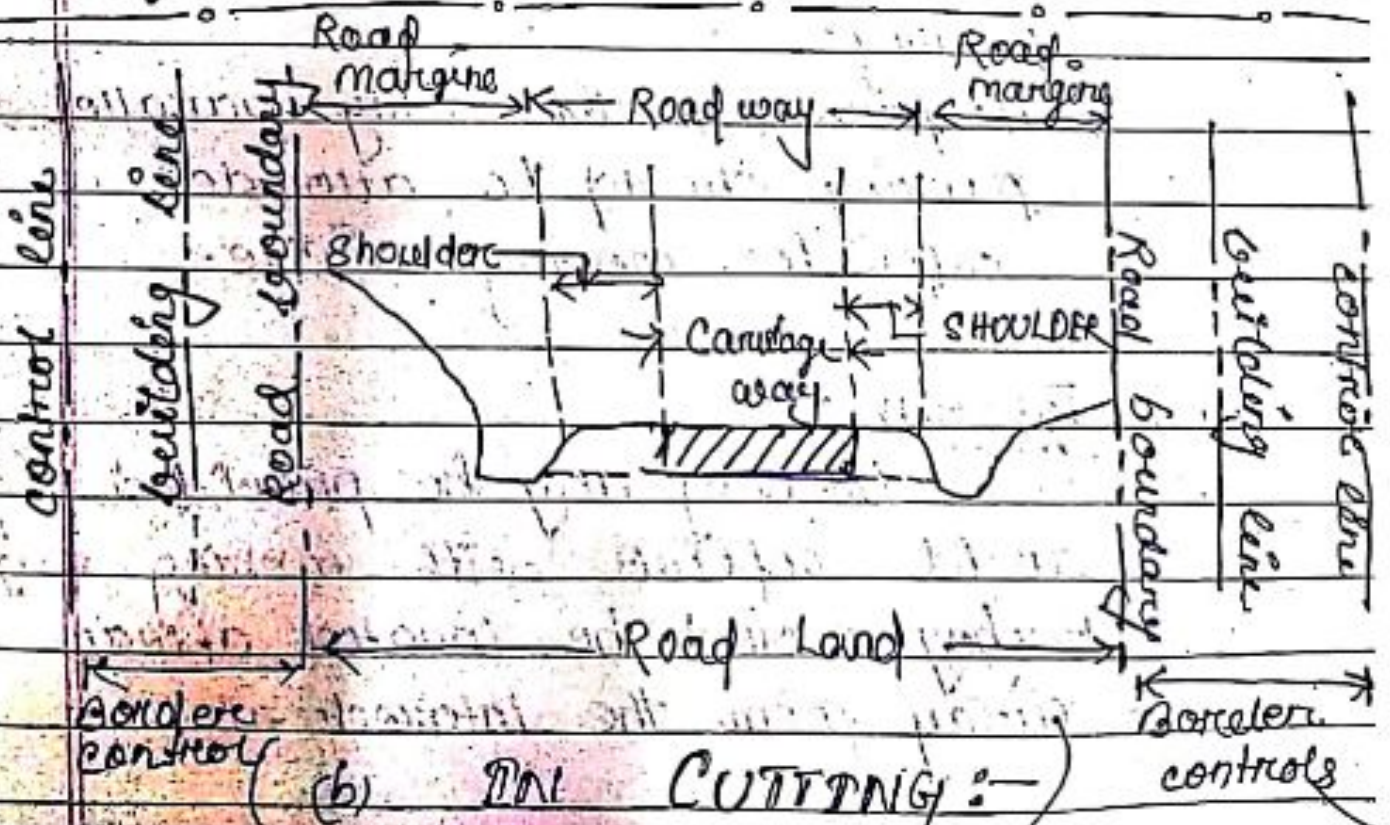 Road
margine
Road way
Road
margine
control line
building line
Road boundary
Shoulder
Carriage
way
SHOULDER
Road boundary
building line
control line
Road Land
Border
control
Border
controls
(b) IN CUTTING :-